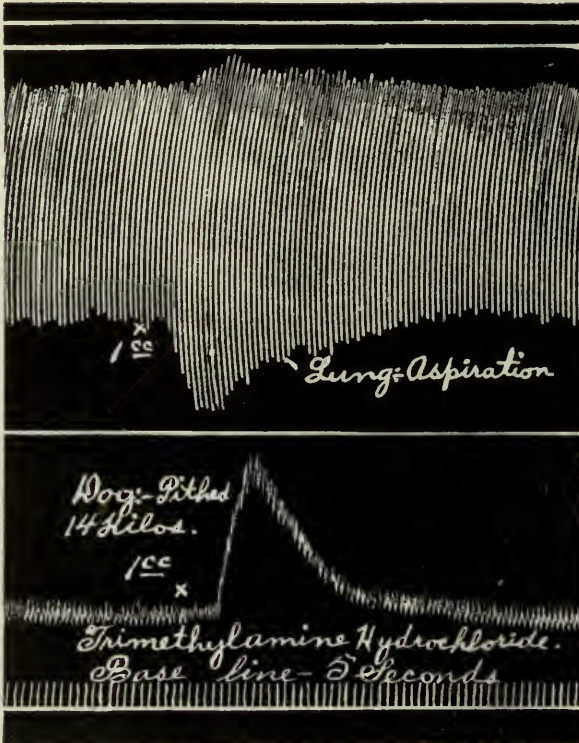 x
1 cc
Lung-Aspiration
Dog:-Pithed
14 Kilos.
1 cc
x
Trimethylamine Hydrochloride.
Base line-5 Seconds